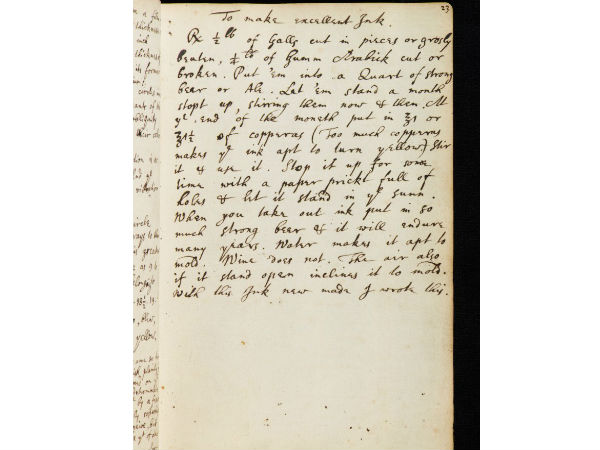 23
To make excellent Ink.
℞ ½ lb of Galls cut in pieces or grosly
beaten, ¼ lb of Gumm Arabick cut or
broken. Put 'em into a Quart of strong
bear or Ale. Let 'em stand a month
stopt up, stirring them now & then. At
ye end of the moneth put in ℥1 or
℥1½ of copperas (Too much copperas
makes ye ink apt to turn yellow.) Stir
it & use it. Stop it up for some
time with a paper prickt full of
holes & let it stand in ye sunn.
When you take out ink put in so
much strong bear & it will endure
many years. Water makes it apt to
mold. Wine does not. The air also
if it stand open inclines it to mold.
With this Ink new made I wrote this.